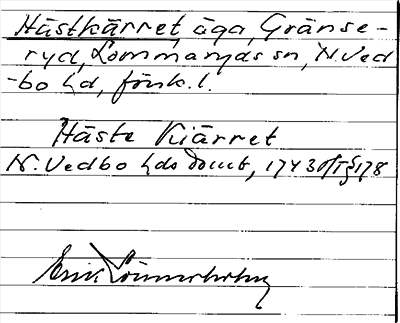 Hästkärret, äga, Gränse-
ryd, Lommaryds sn, N. Ved
-bo hd, Jönk. l.
Häste Kiärret
N. Vedbo hds domb, 1743 § 178
Erik